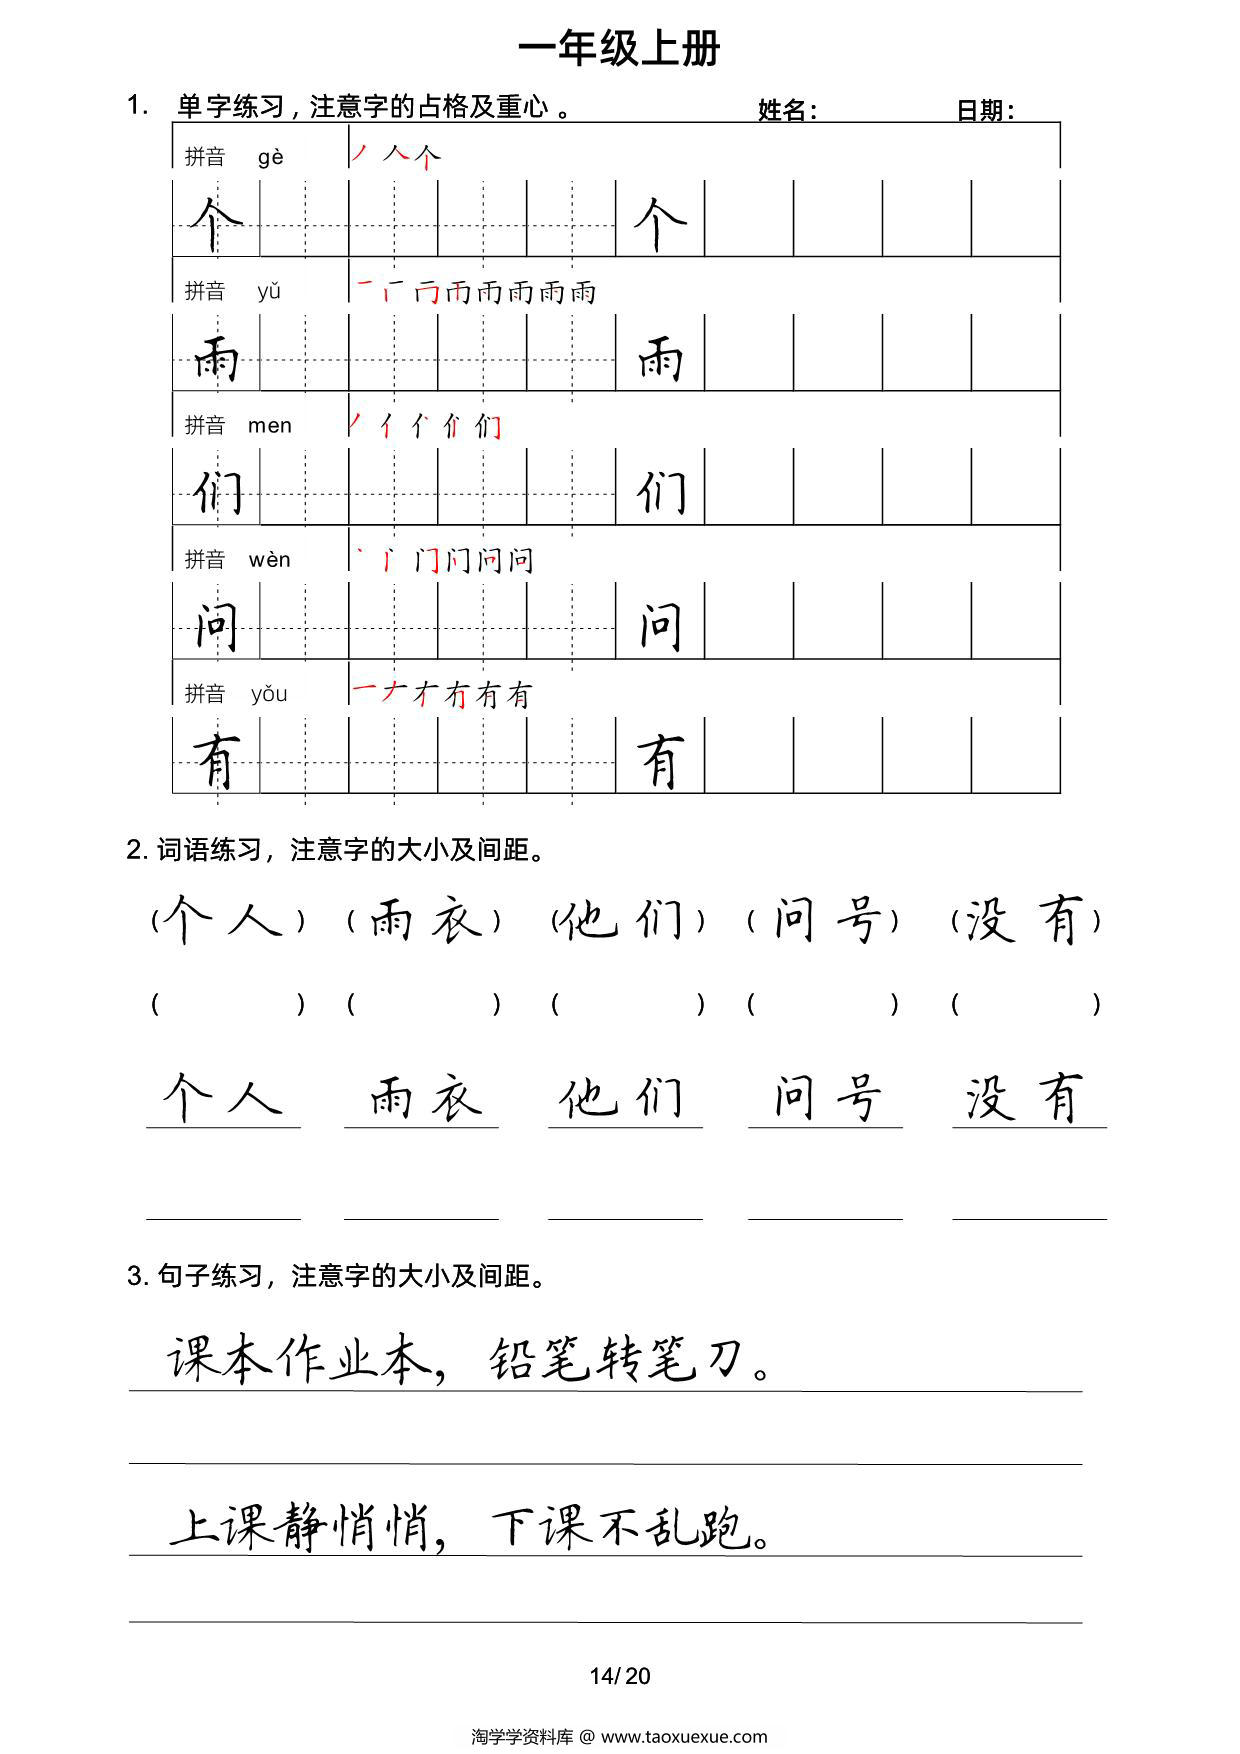 一年级上册
1. 单字练习，注意字的占格及重心。 姓名： 日期：
拼音 gè 丿 人 个
个 个
拼音 yǔ 雨 雨 雨 雨 雨
雨 雨
拼音 men 丿 亻 们
们 们
拼音 wèn 丶 门 问 问
问 问
拼音 yǒu 一 𠂇 有 有
有 有
2. 词语练习，注意字的大小及间距。
（个人） （雨衣） （他们） （问号） （没有）
（ ） （ ） （ ） （ ） （ ）
个人 雨衣 他们 问号 没有
3. 句子练习，注意字的大小及间距。
课本作业本，铅笔转笔刀。
上课静悄悄，下课不乱跑。
14/ 20
淘学学资料库 @ www.taoxuexue.com